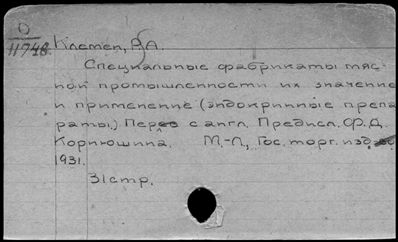 О
11748.
Клемен, Р.А.
Специальные фабрикаты мяс-
ной промышленности их значение
и применение (эндокринные препа-
раты.) Перев с англ. Предисл. Ф.Д.
Корнюшина. М.-Л., Гос. торг. изд-во
1931.
31 стр.